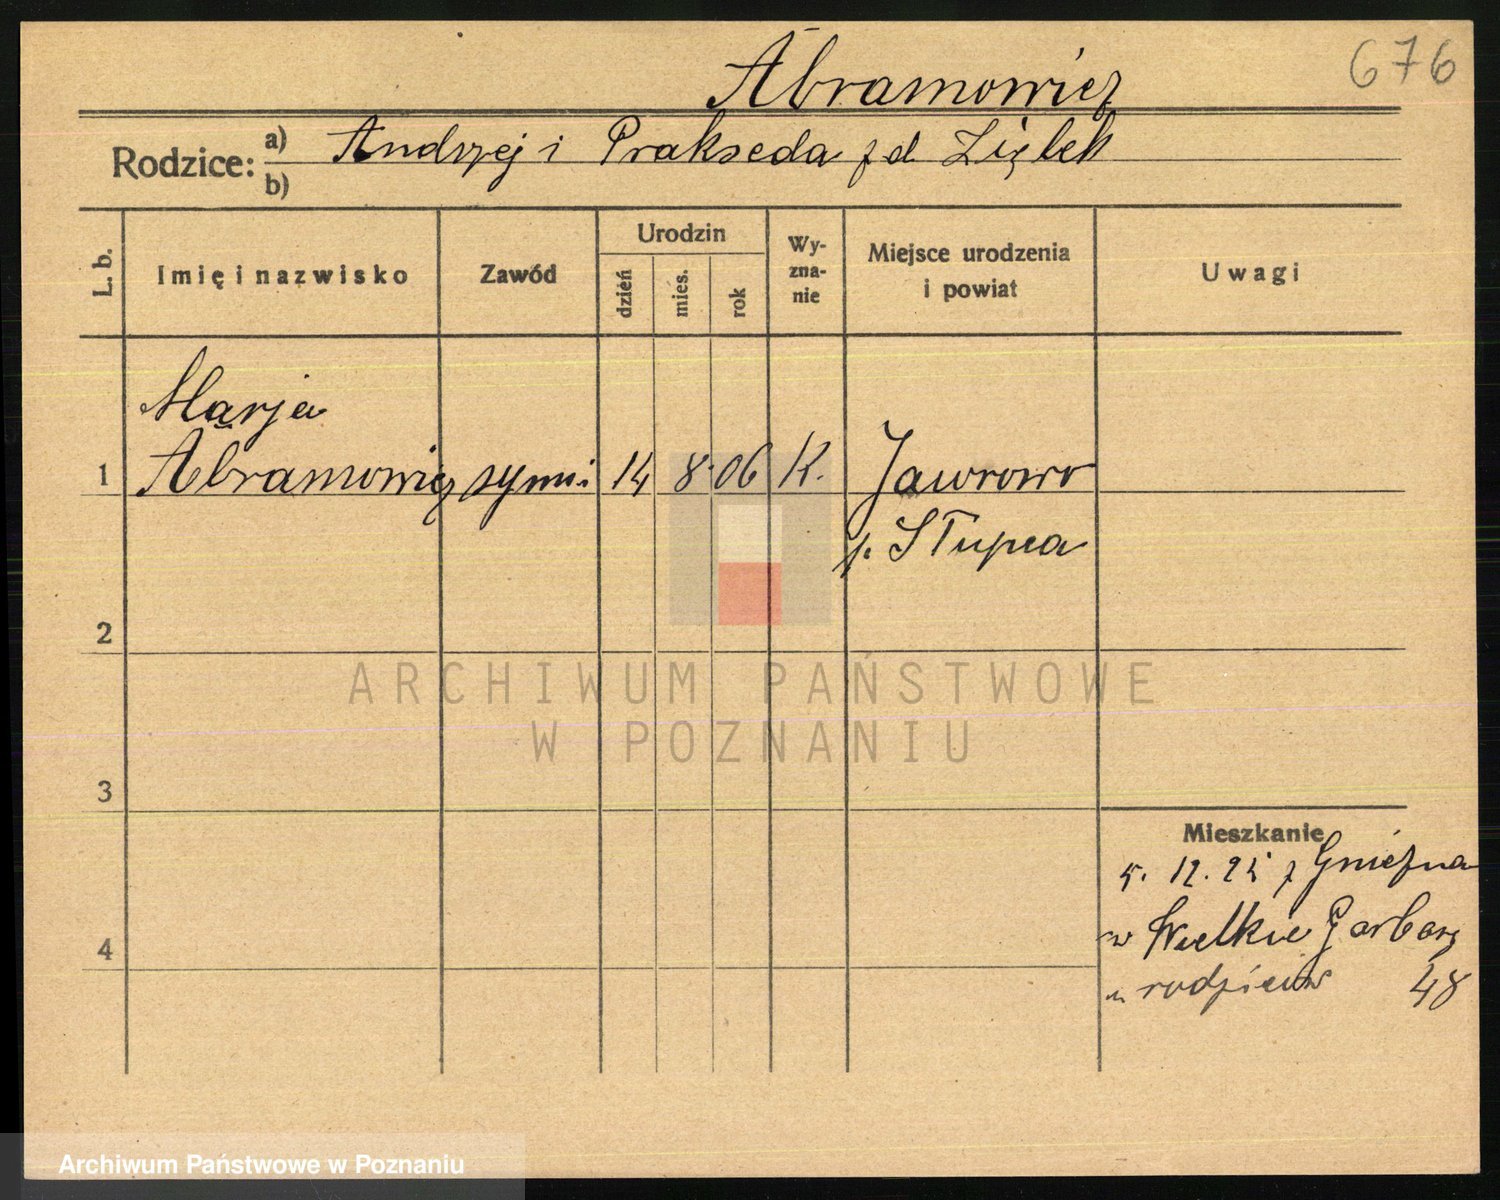 Abramowicz
676
Rodzice: a) Andrzej i Prakseda z d Ziętek
b)
L. b.
Imię i nazwisko
Zawód
Urodzin
dzień
mies.
rok
Wy-
zna-
nie
Miejsce urodzenia
i powiat
Uwagi
Marja
1 Abramowicz 14 8 06 K. Jaworowo
p. Słupca
2
ARCHIWUM PAŃSTWOWE
W POZNANIU
3
Mieszkanie
5. 12. 25 z Gniezna
w Wielkie Garbary
u rodziców 48
4
Archiwum Państwowe w Poznaniu